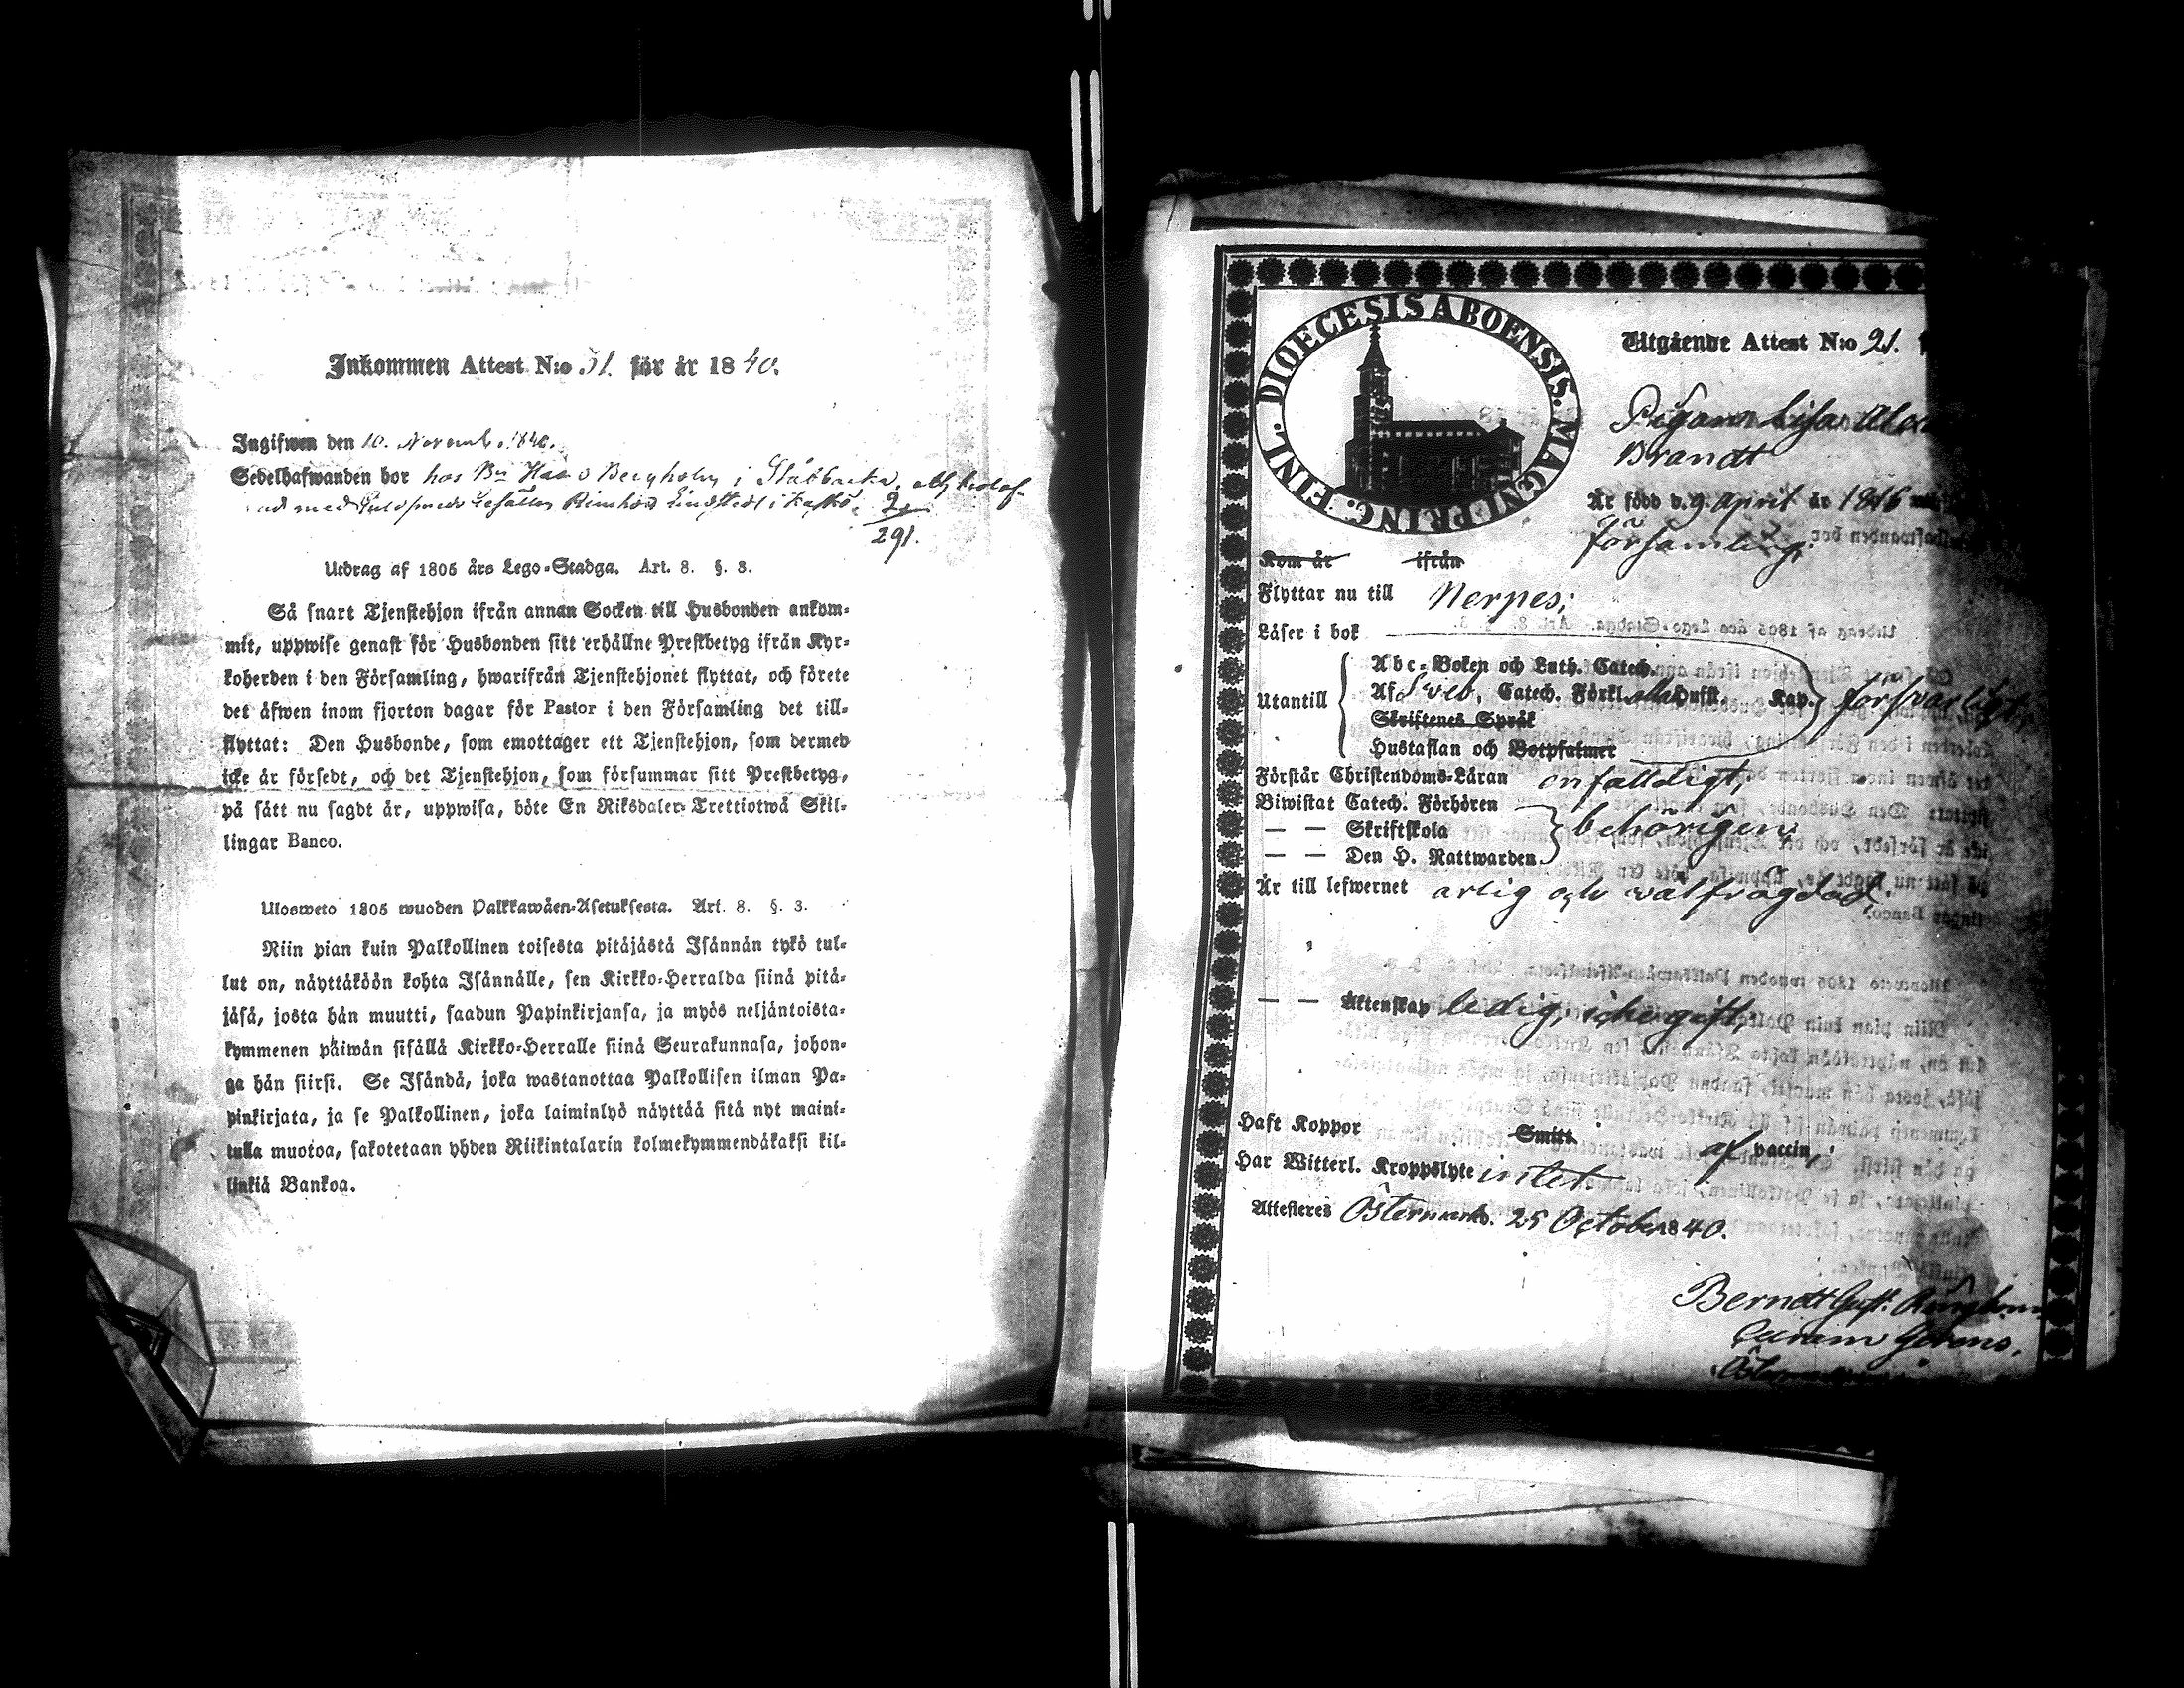 Inkommen Attest N:o 51. för år 1840.
Ingifwen den 10. Novemb. 1840.
Sedelhafwanden bor hos Bn Bergholm i
med Lindstedt i Kaskö. 2
291.
Utdrag af 1805 års Lego-Stadga. Art. 8. §. 3.
Så snart Tjenstehjon ifrån annan Socken till Husbonden ankom-
mit, uppwise genast för Husbonden sitt erhållne Prestbetyg ifrån Kyr-
koherden i den Församling, hwarifrån Tjenstehjonet flyttat, och förete
det äfwen inom fjorton dagar för Pastor i den Församling det till-
flyttat: Den Husbonde, som emottager ett Tjenstehjon, som dermed
icke är försedt, och det Tjenstehjon, som försummar sitt Prestbetyg,
på sätt nu sagdt är, uppwisa, böte En Riksdaler Trettiotwå Skil-
lingar Banco.
Ulosweto 1805 wuoden Palkkawäen-Asetuksesta. Art. 8. §. 3.
Niin pian kuin Palkollinen toisesta pitäjästä Isännän tykö tul-
lut on, näyttäköön kohta Isännälle, sen Kirkko-Herralda siinä pitä-
jäsä, josta hän muutti, saadun Papinkirjansa, ja myös neljäntoista-
kymmenen päiwän sisällä Kirkko-Herralle siinä Seurakunnasa, johon-
ga hän siirsi. Se Isändä, joka wastanottaa Palkollisen ilman Pa-
pinkirjata, ja se Palkollinen, joka laiminlyö näyttää sitä nyt maini-
tulla muotoa, sakotetaan yhden Riikintalarin kolmekymmendäkaksi kil-
linkiä Bankoa.
DIOECESIS ABOENSIS. MAGNI PRINC. FINL.
Utgående Attest N:o 21.
Pigan Lisa
Brandt
Är född d. 9 April år 1816
församling.
Kom år ifrån
Flyttar nu till Nerpes;
Läser i bok
Utantill
Abc-Boken och Luth. Catech.
Af Sveb. Catech. Förkl. alla Hufst. Kap. försvarligt,
Skriftenes Språk
Hustaflan och Botpsalmer
Förstår Christendoms-Läran enfalldigt,
Biwistat Catech. Förhören
— — Skriftskola behörigen,
— — Den H. Nattwarden
Är till lefwernet ärlig och välfrägdad,
— — Äktenskap ledig, icke gift,
Haft Koppor Smitt. af vaccin,
Har Witterl. Kroppslyte intet
Attesteres Östermark. 25 October 1840.
Berndt Gust.
Curam Gerens.